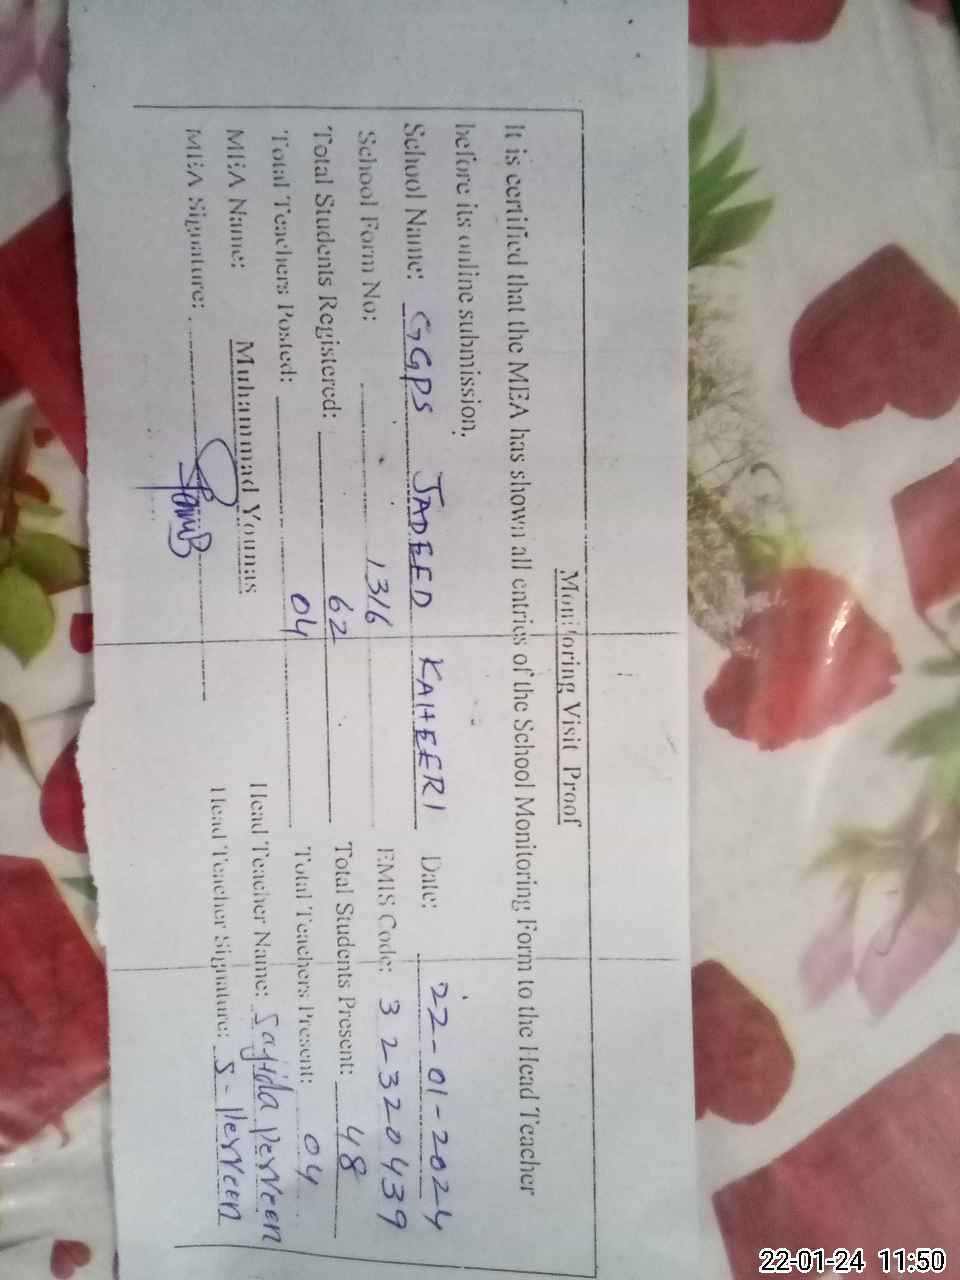 Monitoring Visit Proof
It is certified that the MEA has shown all entries of the School Monitoring Form to the Head Teacher
before its online submission.
School Name: GGPS JADEED KAHEERI Date: 22-01-2024
School Form No: 1316 EMIS Code: 32320439
Total Students Registered: 62 Total Students Present: 48
Total Teachers Posted: 04 Total Teachers Present: 04
MEA Name: Muhammad Younas Head Teacher Name: Sajida Perveen
MEA Signature: Head Teacher Signature: S-Perveen
22-01-24 11:50